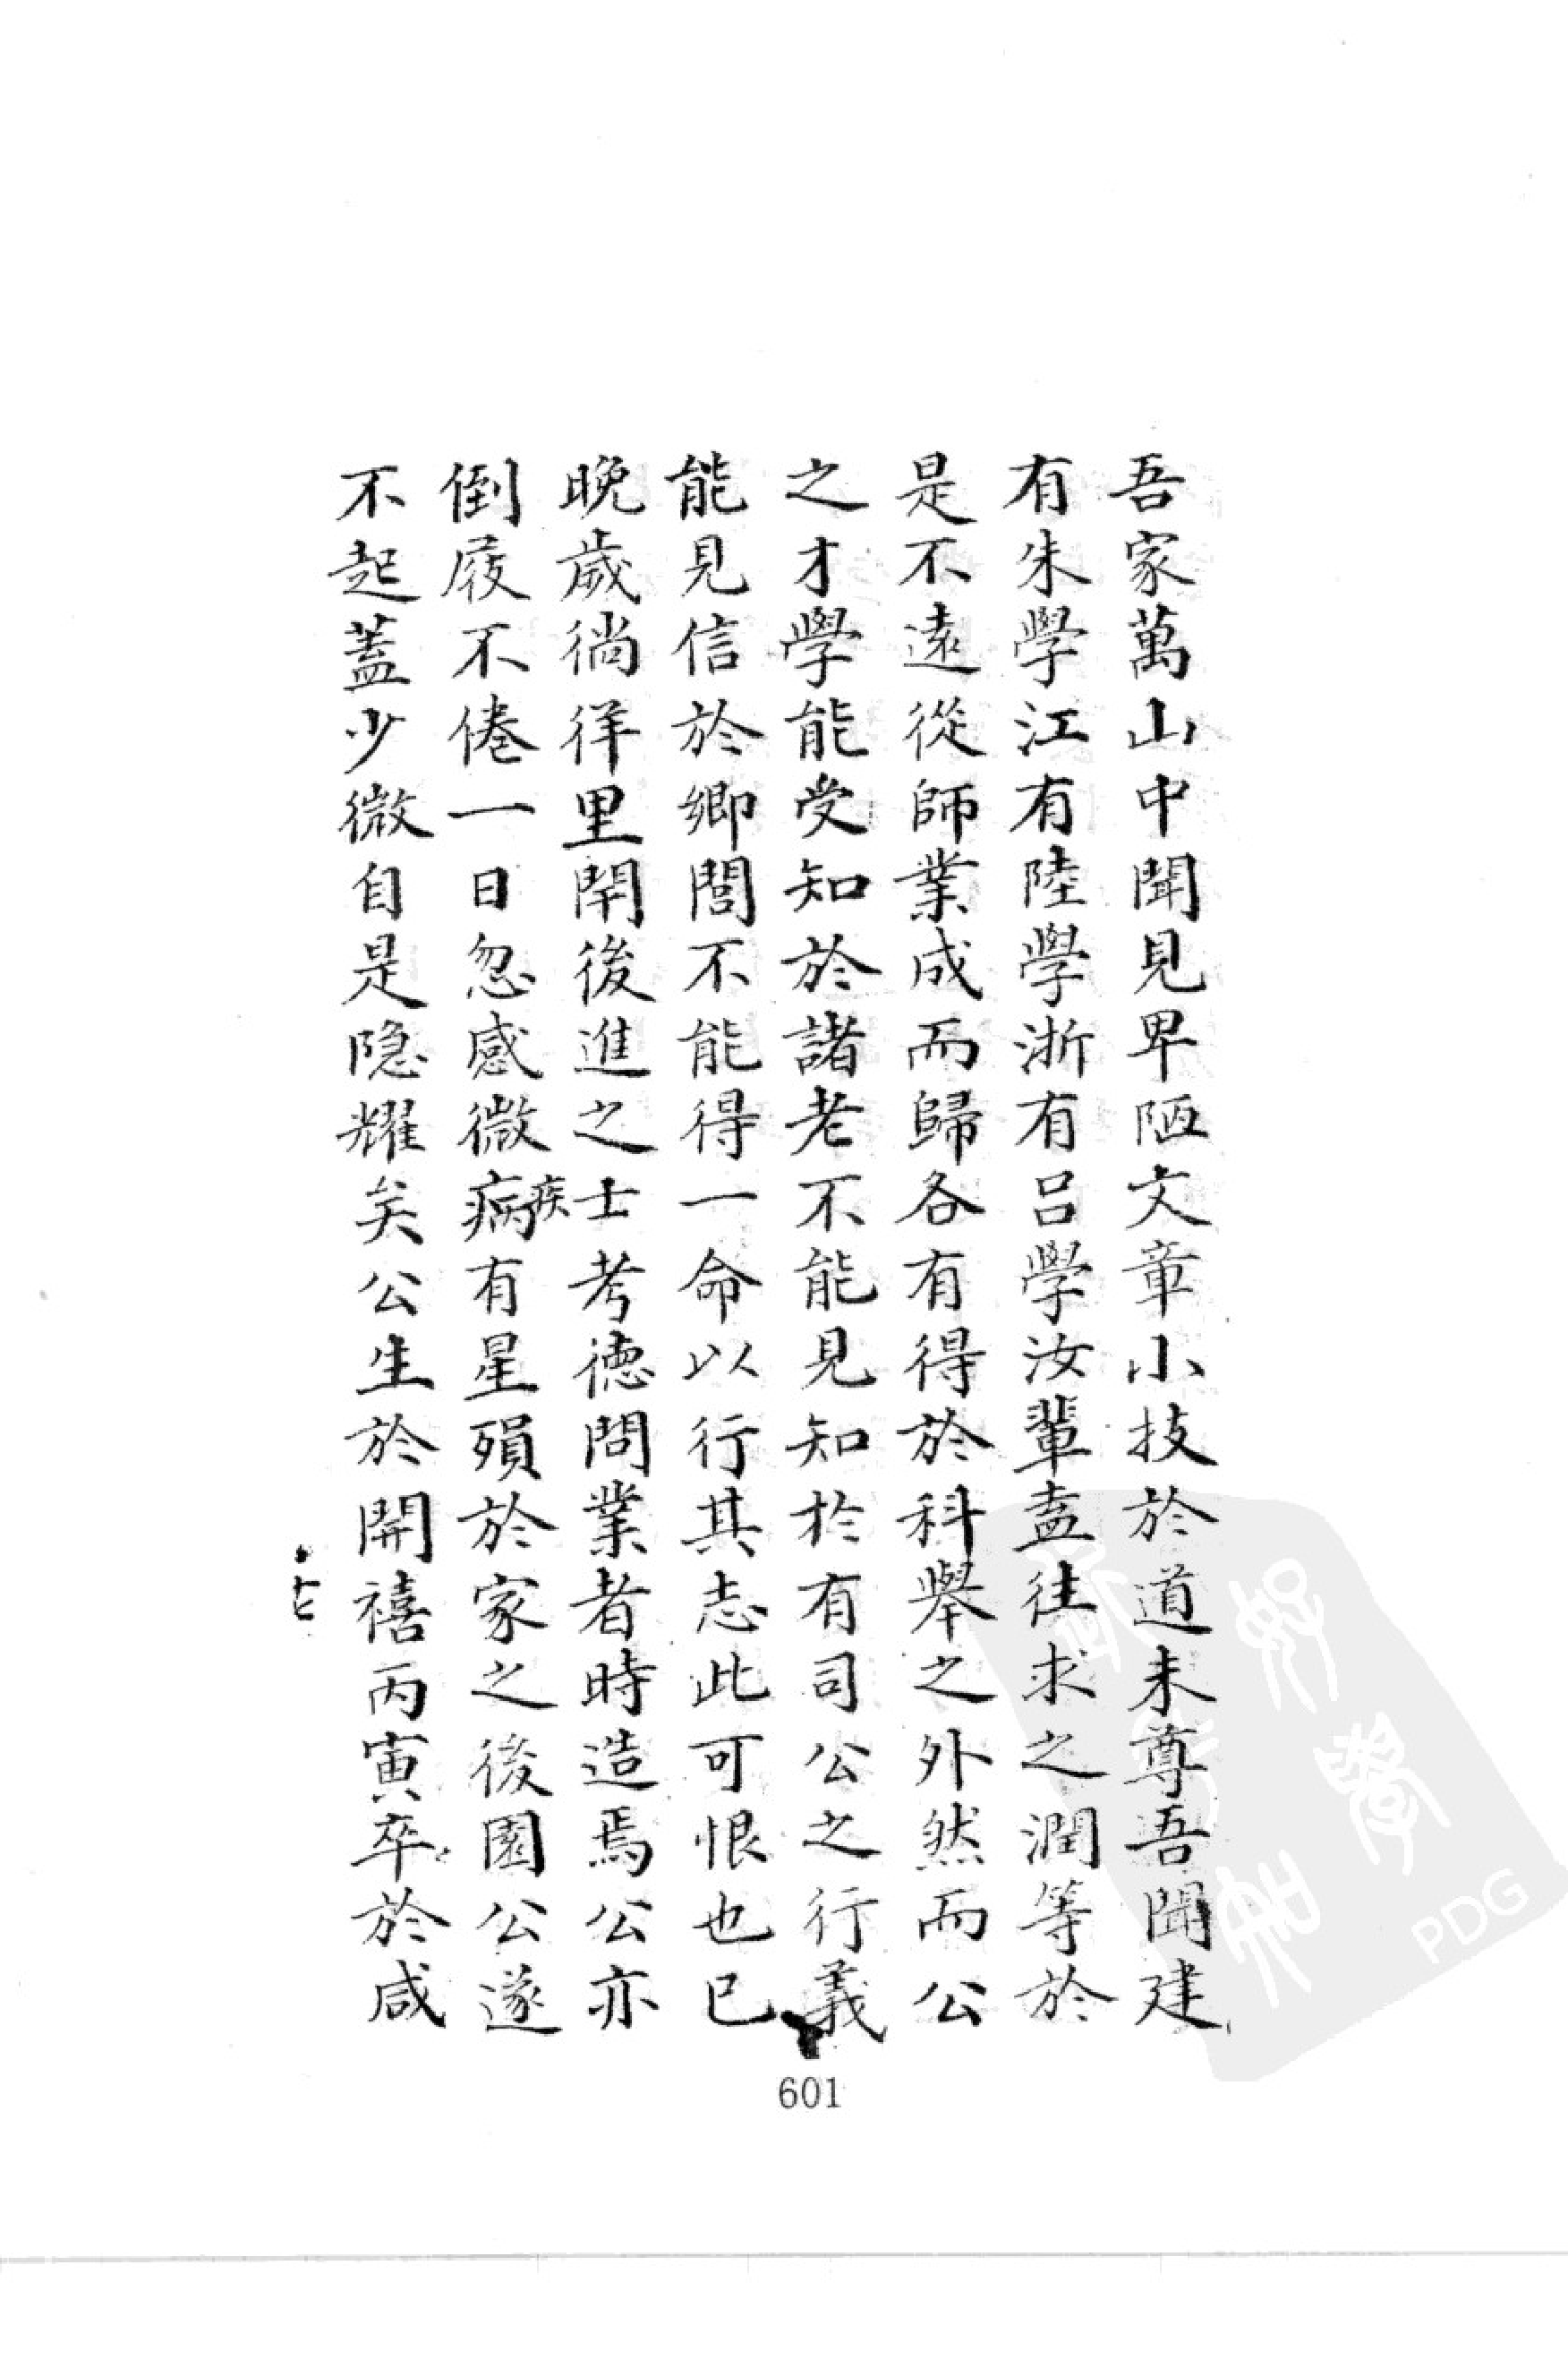 吾家萬山中聞見卑陋文章小技於道未尊吾聞建
有朱學江有陸學浙有呂學汝輩盍往求之潤等於
是不遠從師業成而歸各有得於科舉之外然而公
之才學能受知於諸老不能見知於有司公之行義
能見信於鄉閭不能得一命以行其志此可恨也已
晚歲徜徉里閈後進之士考德問業者時造焉公亦
倒屐不倦一日忽感微病疾有星殞於家之後園公遂
不起蓋少微自是隐耀矣公生於開禧丙寅卒於咸
七
601
PDG